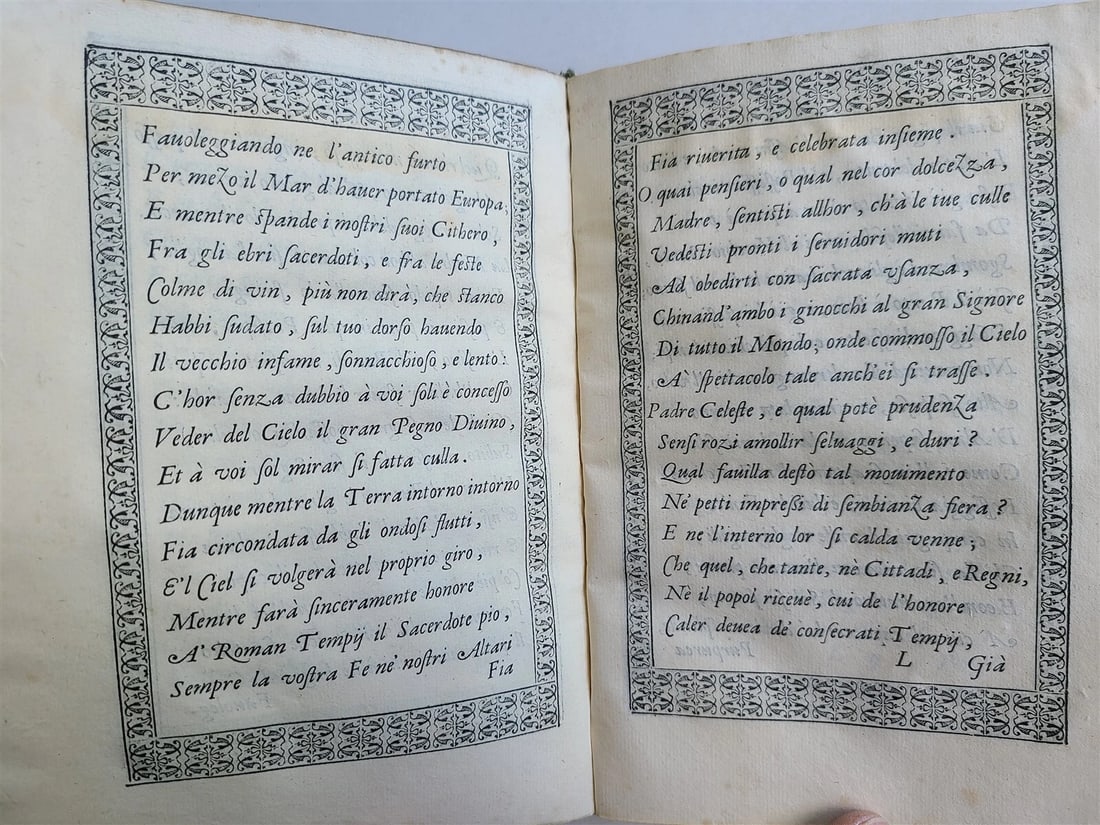 Fauoleggiando ne l'antico furto
Per mezo il Mar d'hauer portato Europa;
E mentre ſpande i moſtri ſuoi Cithero,
Fra gli ebri ſacerdoti, e fra le feſte
Colme di vin, più non dira, che ſtanco
Habbi ſudato, ſul tuo dorſo hauendo
Il vecchio infame, ſonnacchioſo, e lento:
C'hor ſenza dubbio à voi ſoli è conceſſo
Veder del Cielo il gran Pegno Diuino,
Et à voi ſol mirar ſi fatta culla.
Dunque mentre la Terra intorno intorno
Fia circondata da gli ondoſi flutti,
E'l Ciel ſi volgerà nel proprio giro,
Mentre farà ſinceramente honore
A' Roman Tempij il Sacerdote pio,
Sempre la voſtra Fe ne' noſtri Altari
Fia
Fia riuerita, e celebrata inſieme.
O quai penſieri, o qual nel cor dolcezza,
Madre, ſentiſti allhor, ch'à le tue culle
Vedeſti pronti i ſeruidori muti
Ad obedirti con ſacrata vſanza,
Chinand'ambo i ginocchi al gran Signore
Di tutto il Mondo; onde commoſſo il Cielo
A' ſpettacolo tale anch'ei ſi traſſe.
Padre Celeſte, e qual potè prudenza
Senſi rozi amollir ſeluaggi, e duri?
Qual fauilla deſto tal mouimento
Ne' petti impreſſi di ſembianza fiera?
E ne l'interno lor ſi calda venne;
Che quel, che tante, nè Cittadi, e Regni,
Nè il popol riceuè, cui de l'honore
Caler deuea de' conſecrati Tempij,
L Già